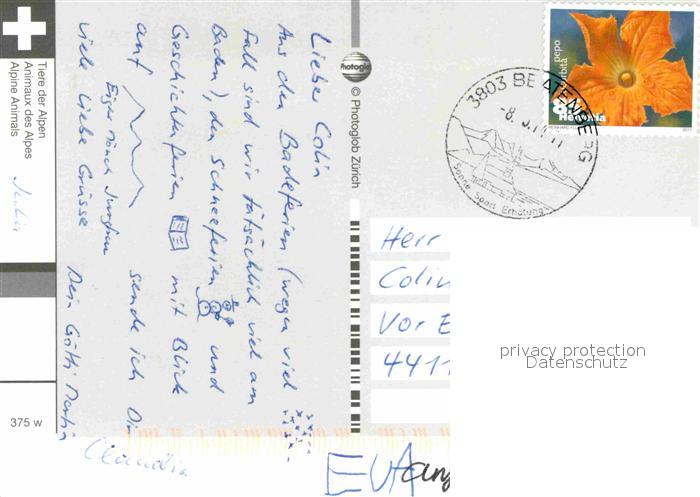 Lieber Colin
Aus den Badeferien (wegen viel
Fall sind wir tatsächlich viel am
Baden), den Schneeferien und
Geschichtsferien mit Blick
auf sende ich Dir
Eiger Mönch Jungfrau
viele Liebe Grüsse
Dein Götti Martin
Claudia
EVA
Tiere der Alpen
Animaux des Alpes
Alpine Animals
375 w
Photoglob
© Photoglob Zürich
3803 BEATENBERG
Sonne Sport Erholung
pepo
Helvetia
Herr
Colin
Vor E
4411
privacy protection
Datenschutz